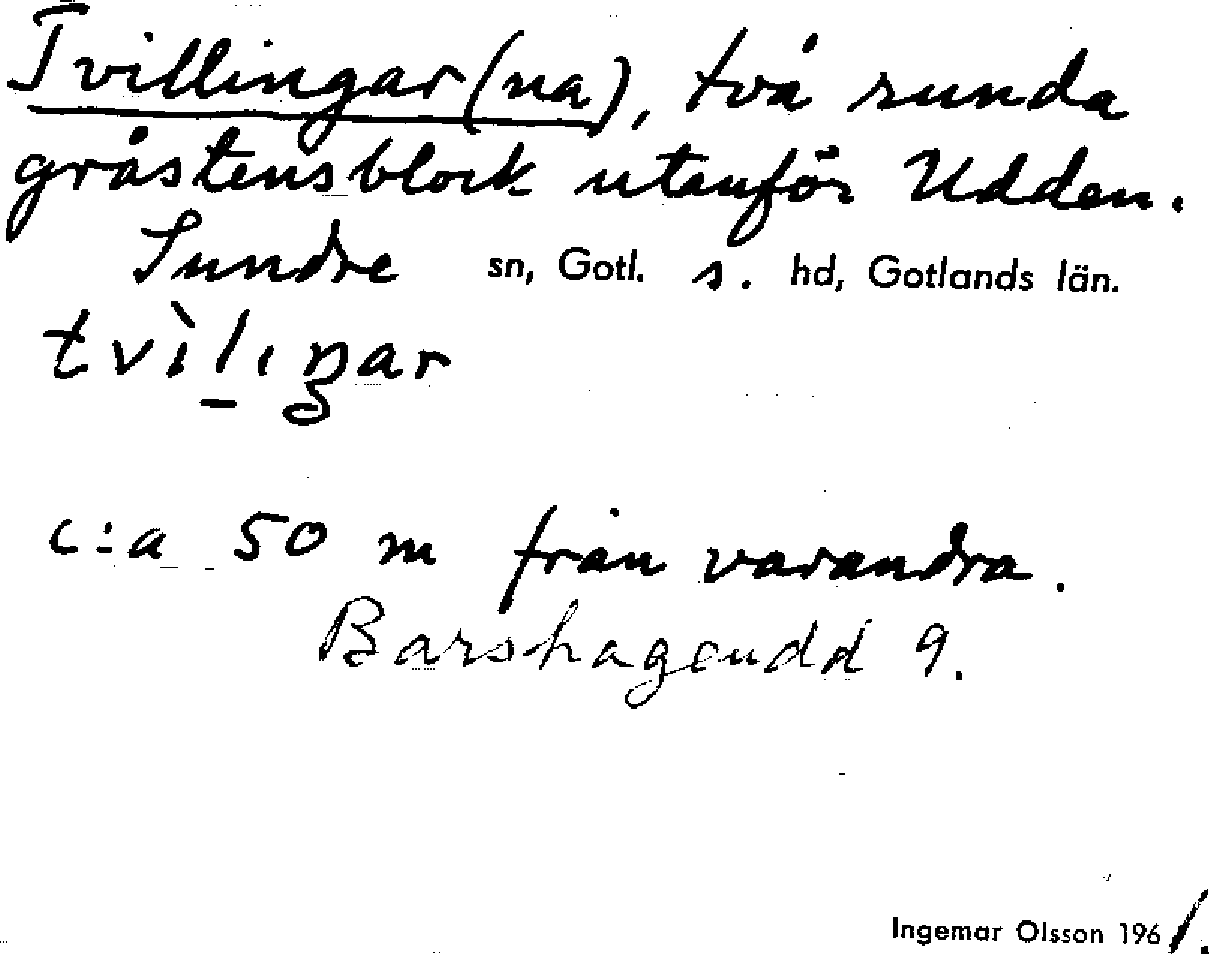 Tvillingar(na), två runda
gråstensblock utanför Udden.
Sundre sn, Gotl. s. hd, Gotlands län.
tvìl̠ıŋar
c:a 50 m från varandra.
Barshageudd 9.
Ingemar Olsson 1961.